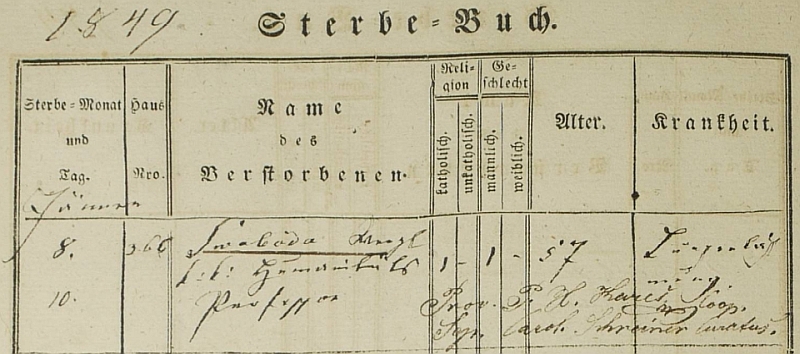 1849
Sterbe-Buch.
Sterbe-Monat und Tag.
Haus Nro.
Name des Verstorbenen.
Religion
katholisch.
unkatholisch.
Geschlecht
männlich.
weiblich.
Alter.
Krankheit.
Jänner
8. 366 Swoboda 1 - 1 - 57 Lungenläh
k.k. Humanitäts mung
10. Professor Prov. P. Koop.
Sep. Carol. Schreiner Curatus.